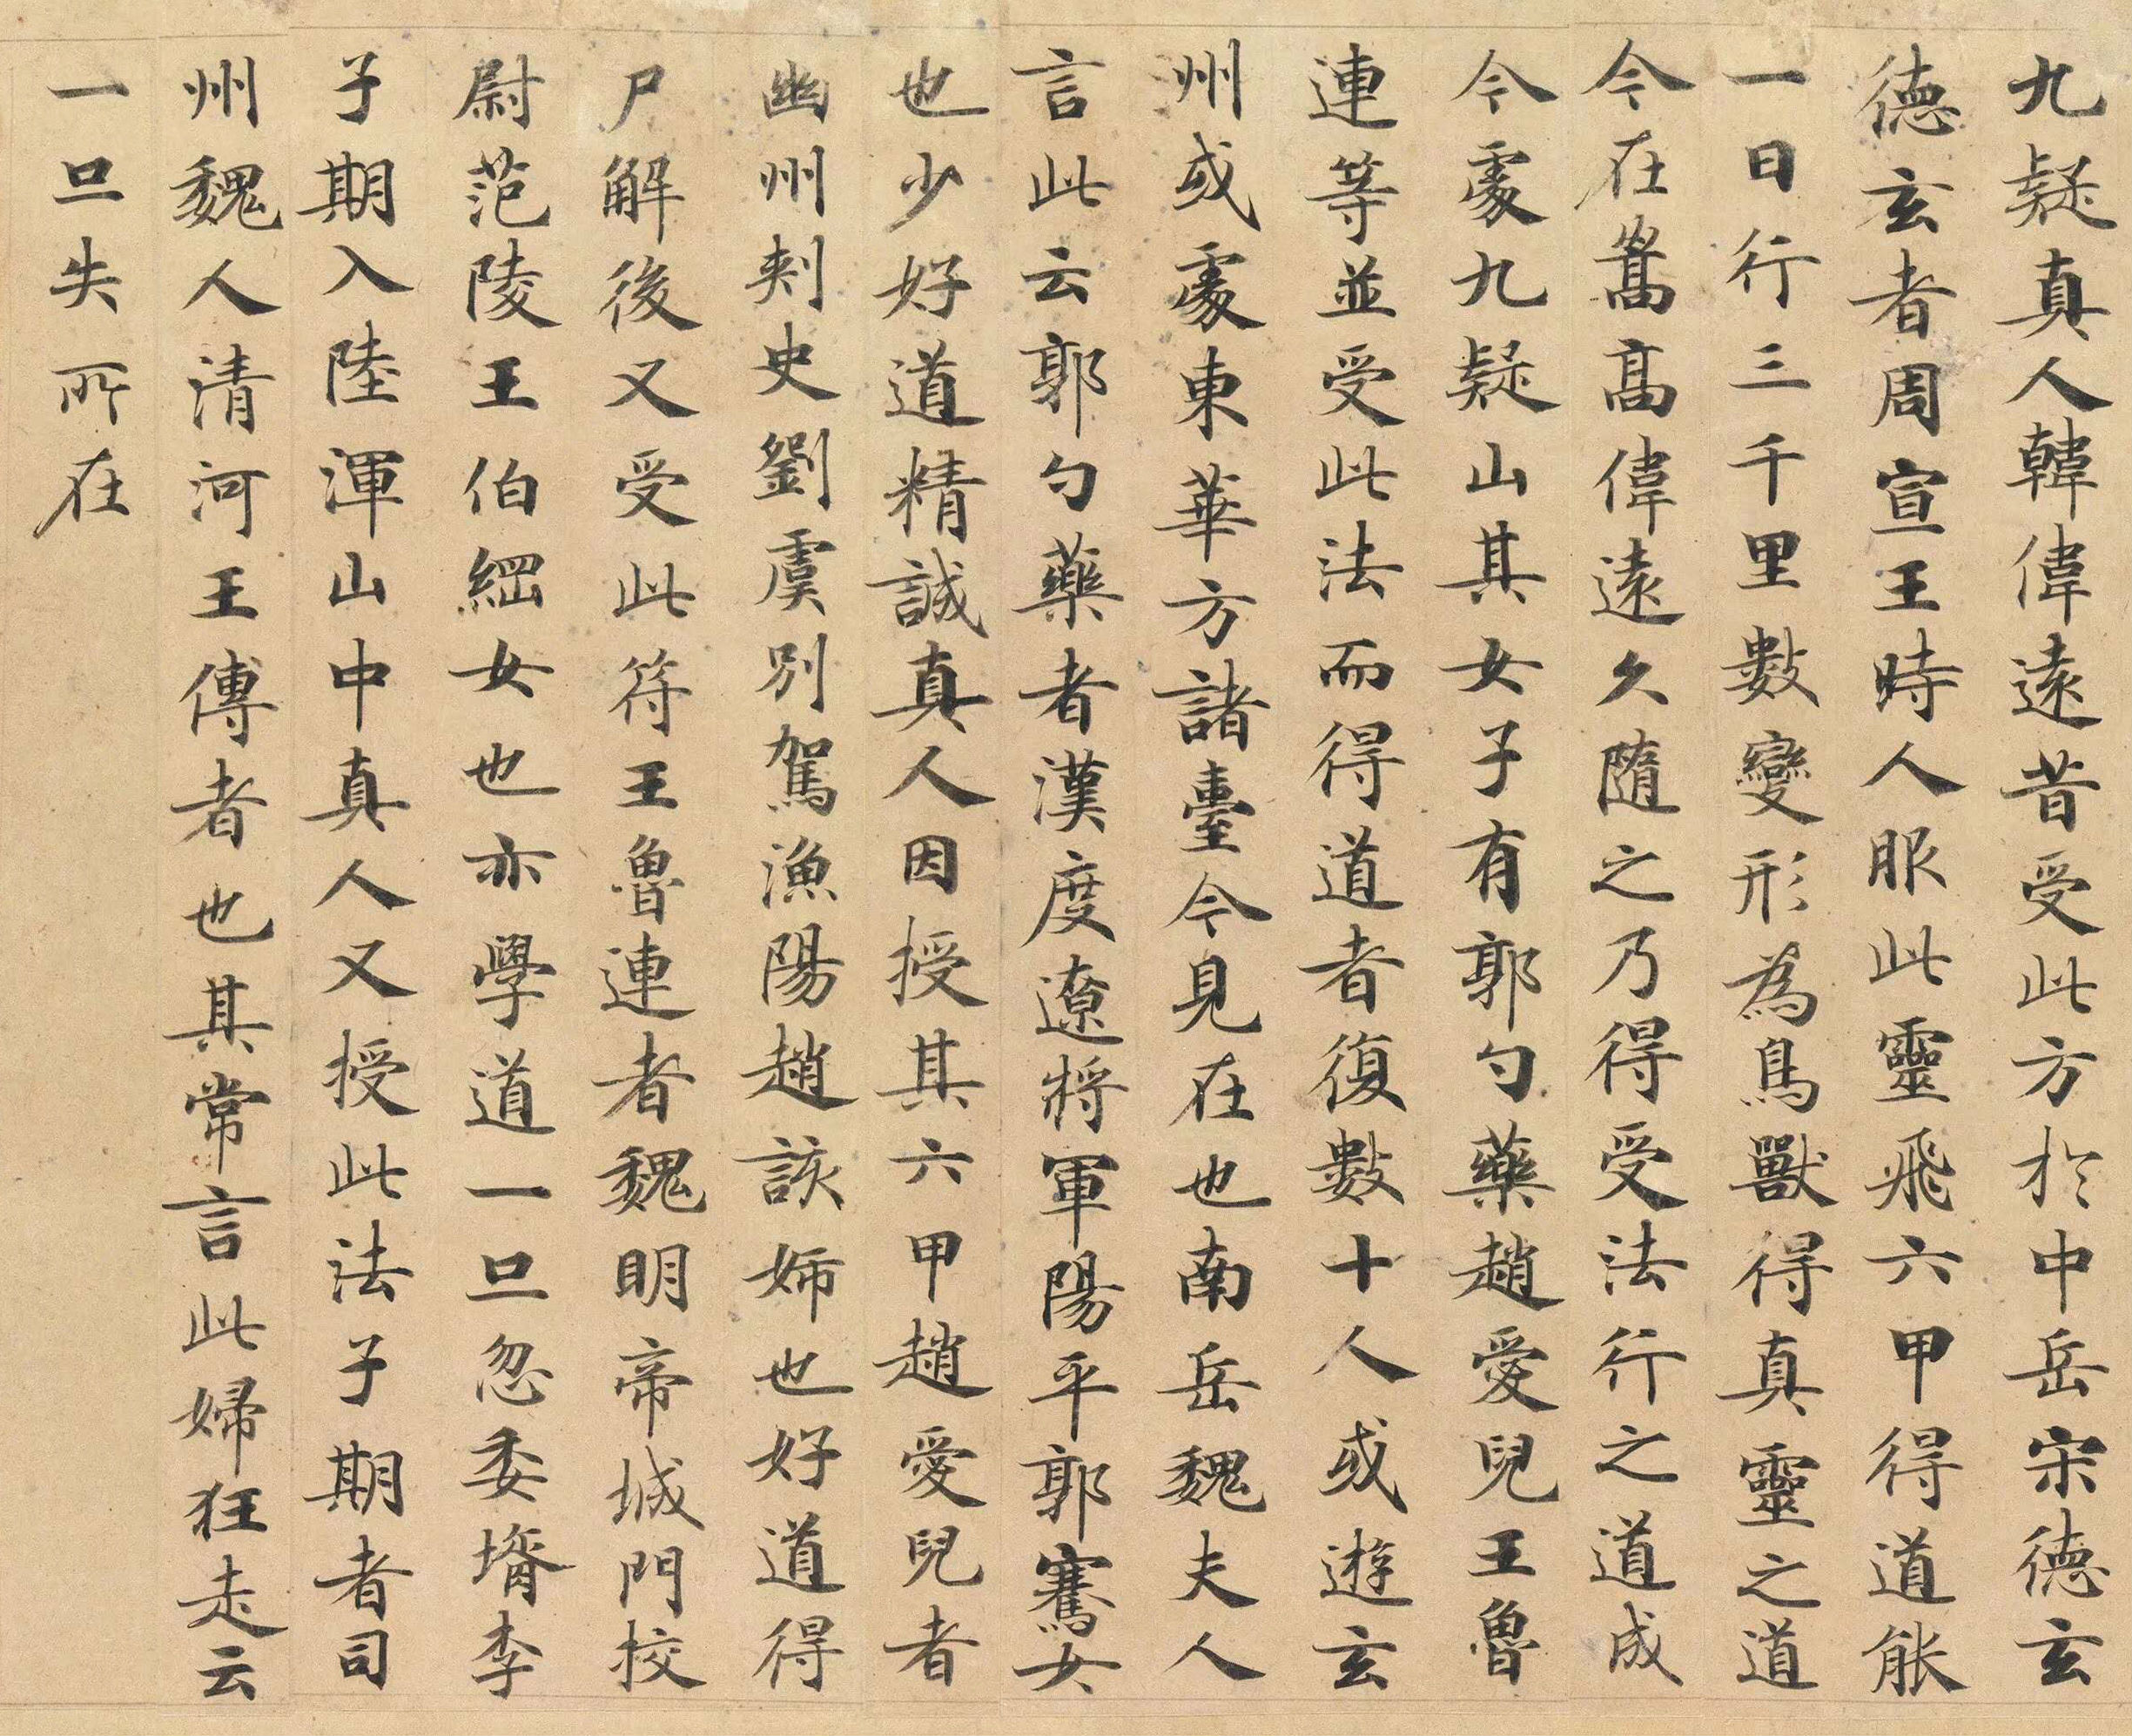 九疑真人韓偉遠昔受此方於中岳宋德玄
德玄者周宣王時人服此靈飛六甲得道能
一日行三千里數變形為鳥獸得真靈之道
今在嵩高偉遠久隨之乃得受法行之道成
今處九疑山其女子有郭勺藥趙愛兒王魯
連等並受此法而得道者復數十人或遊玄
州或處東華方諸臺今見在也南岳魏夫人
言此云郭勺藥者漢度遼將軍陽平郭騫女
也少好道精誠真人因授其六甲趙愛兒者
幽州刾史劉虞別駕漁陽趙該姊也好道得
尸解後又受此符王魯連者魏明帝城門挍
尉范陵王伯綱女也亦學道一旦忽委壻李
子期入陸渾山中真人又授此法子期者司
州魏人清河王傅者也其常言此婦狂走云
一旦失所在